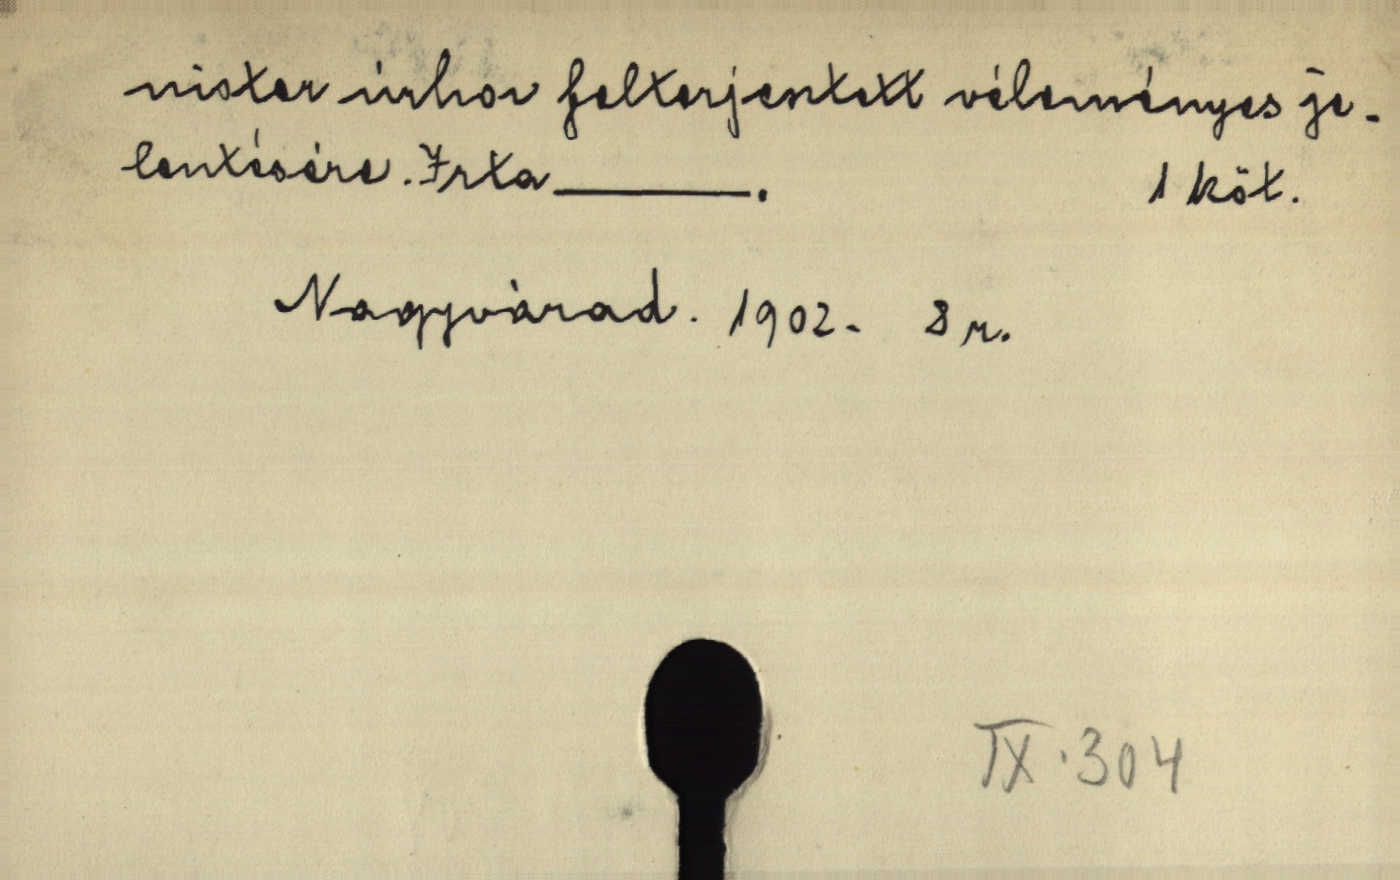 nister úrhoz felterjesztett véleményes je-
lentésére. Irta ______. 1 köt.
Nagyvárad. 1902. 8 r.
IX. 304